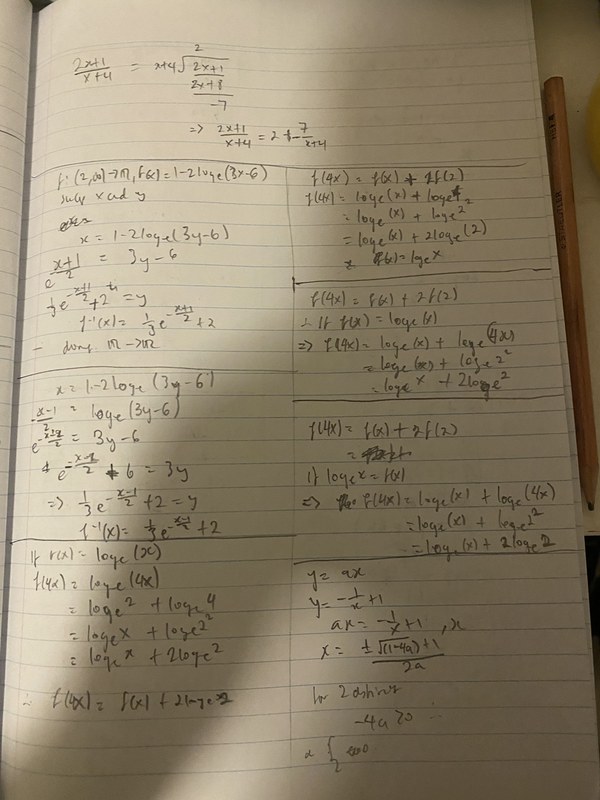 2x+1/x+4 = x+4√2x+1
2
2x+8
-7
=> 2x+1/x+4 = 2 + -7/x+4
f: (2,∞)→ℝ, f(x)=1-2loge(3x-6)
swap x and y
x = 1-2loge(3y-6)
e^(x+1/2) = 3y-6
1/3 e^(-x+1/2) +2 = y
f⁻¹(x)= 1/3 e^(-x+1/2) + 2
ℝ→ℝ
x = 1-2loge(3y-6)
-x-1/2 = loge(3y-6)
= 3y-6
+6 = 3y
=> 1/3 e^(-x-1/2) +2 = y
f⁻¹(x)= 1/3 e^(-x-1/2) +2
If f(x) = loge(x)
f(4x) = loge(4x)
= loge 2 + loge 4
= loge x + loge 2²
= loge x + 2loge 2
∴ f(4x) = f(x) + 2loge
f(4x) = f(x) + 2f(2)
f(4x) = loge(x) +
= loge(x) + loge 2
= loge(x) + 2loge(2)
f(x) = loge x
f(4x) = f(x) + 2f(2)
∴ If f(x) = loge(x)
=> f(4x) = loge(x) + loge(4x)
= loge(x) + loge 2²
= loge x + 2loge 2
f(4x) = f(x) + 2f(2)
=
If loge x = f(x)
=> f(4x) = loge(x) + loge(4x)
= loge(x) + loge 2²
= loge(x) + 2loge 2
y = ax
y = -1/x +1
ax = -1/x +1 , x
x = ±√(1-4a)+1/2a
for 2
-4a ≥0